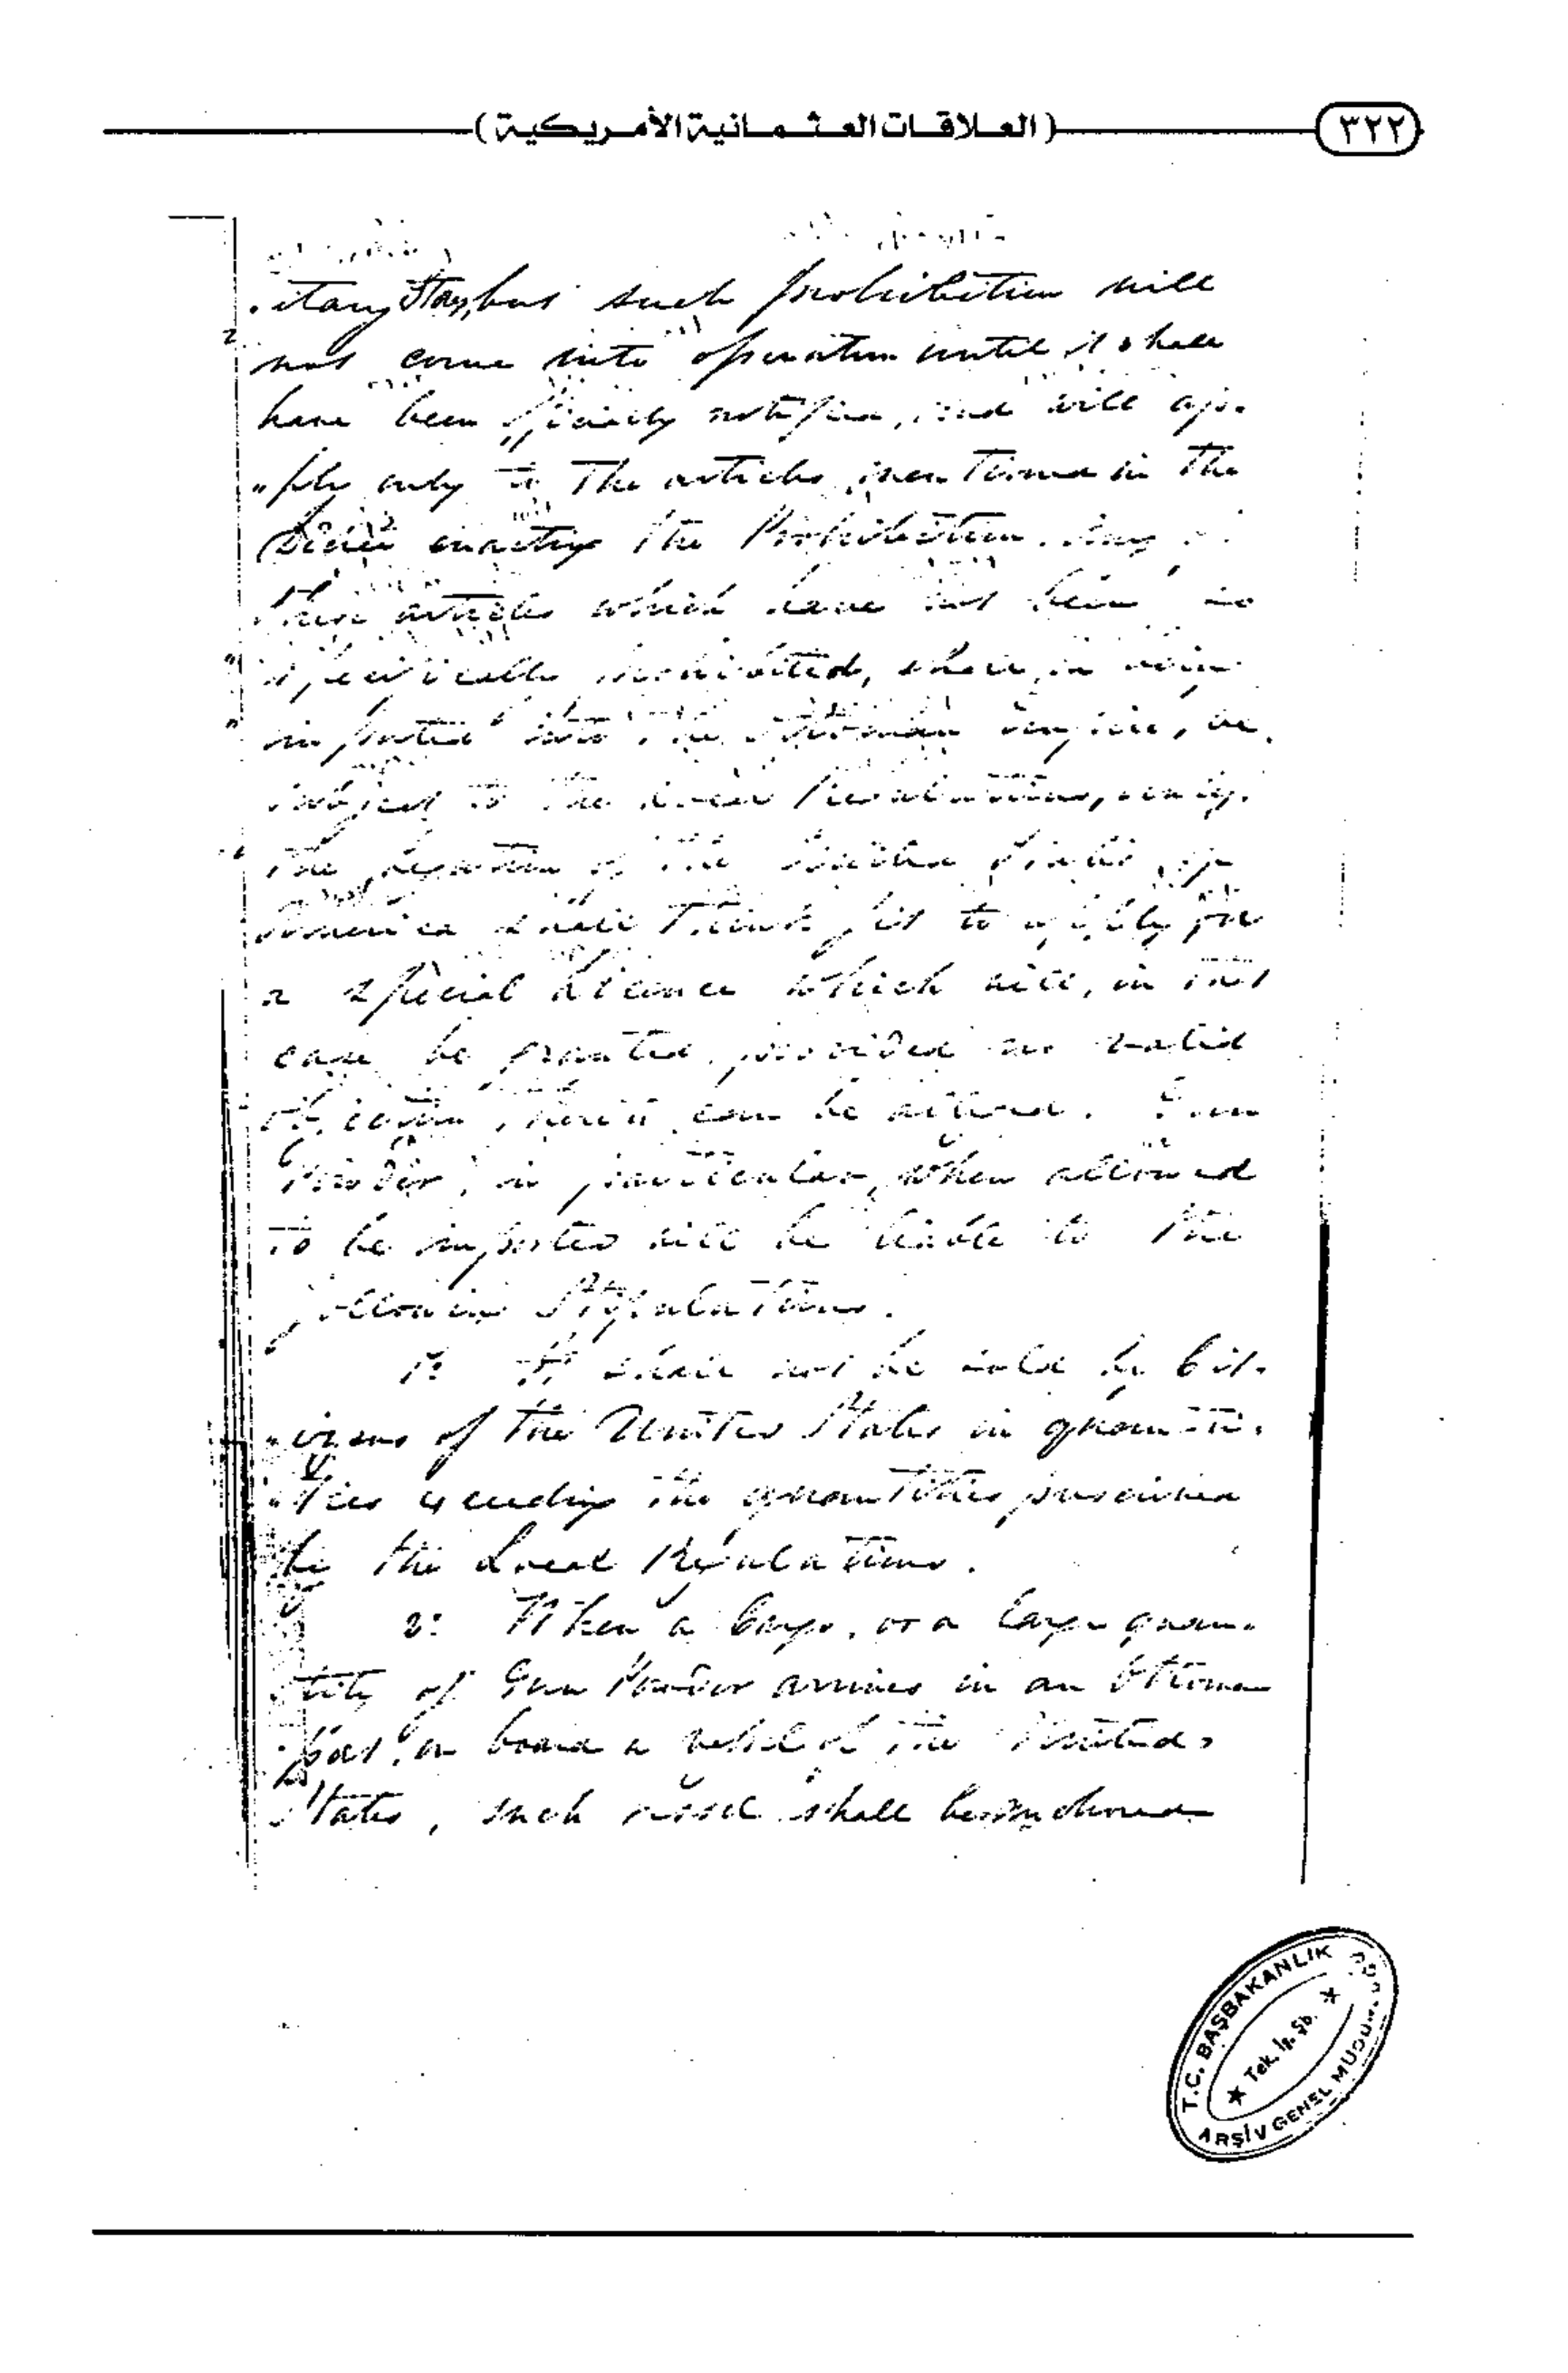 (العلاقات العثمانية الأمريكية)
٣٢٢
itary Stores, but such prohibition will
not come into operation until it shall
have been officially notified, and will ap-
ply only to the articles mentioned in the
enacting the Prohibition. Any
these articles which have not been so
specifically prohibited, shall, in being
imported into the Ottoman Empire, be
subject to the local Regulations, unless
The Legation of the United States of
America shall think fit to apply for
a special licence which will, in that
case be granted, provided no valid
objection thereto can be alleged. Gun
Powder, in particular, when allowed
to be imported will be liable to the
following Stipulations.
1º It shall not be sold by Cit-
izens of the United States in quanti-
ties exceeding the quantities prescribed
by the Local Regulations.
2º When a Cargo, or a large quan-
tity of Gun Powder arrives in an Ottoman
port, on board a vessel of the United
States, such vessel shall be anchored
T.C. BAŞBAKANLIK
★ Tek. İş. Şb. ★
ARŞİV GENEL MÜDÜR